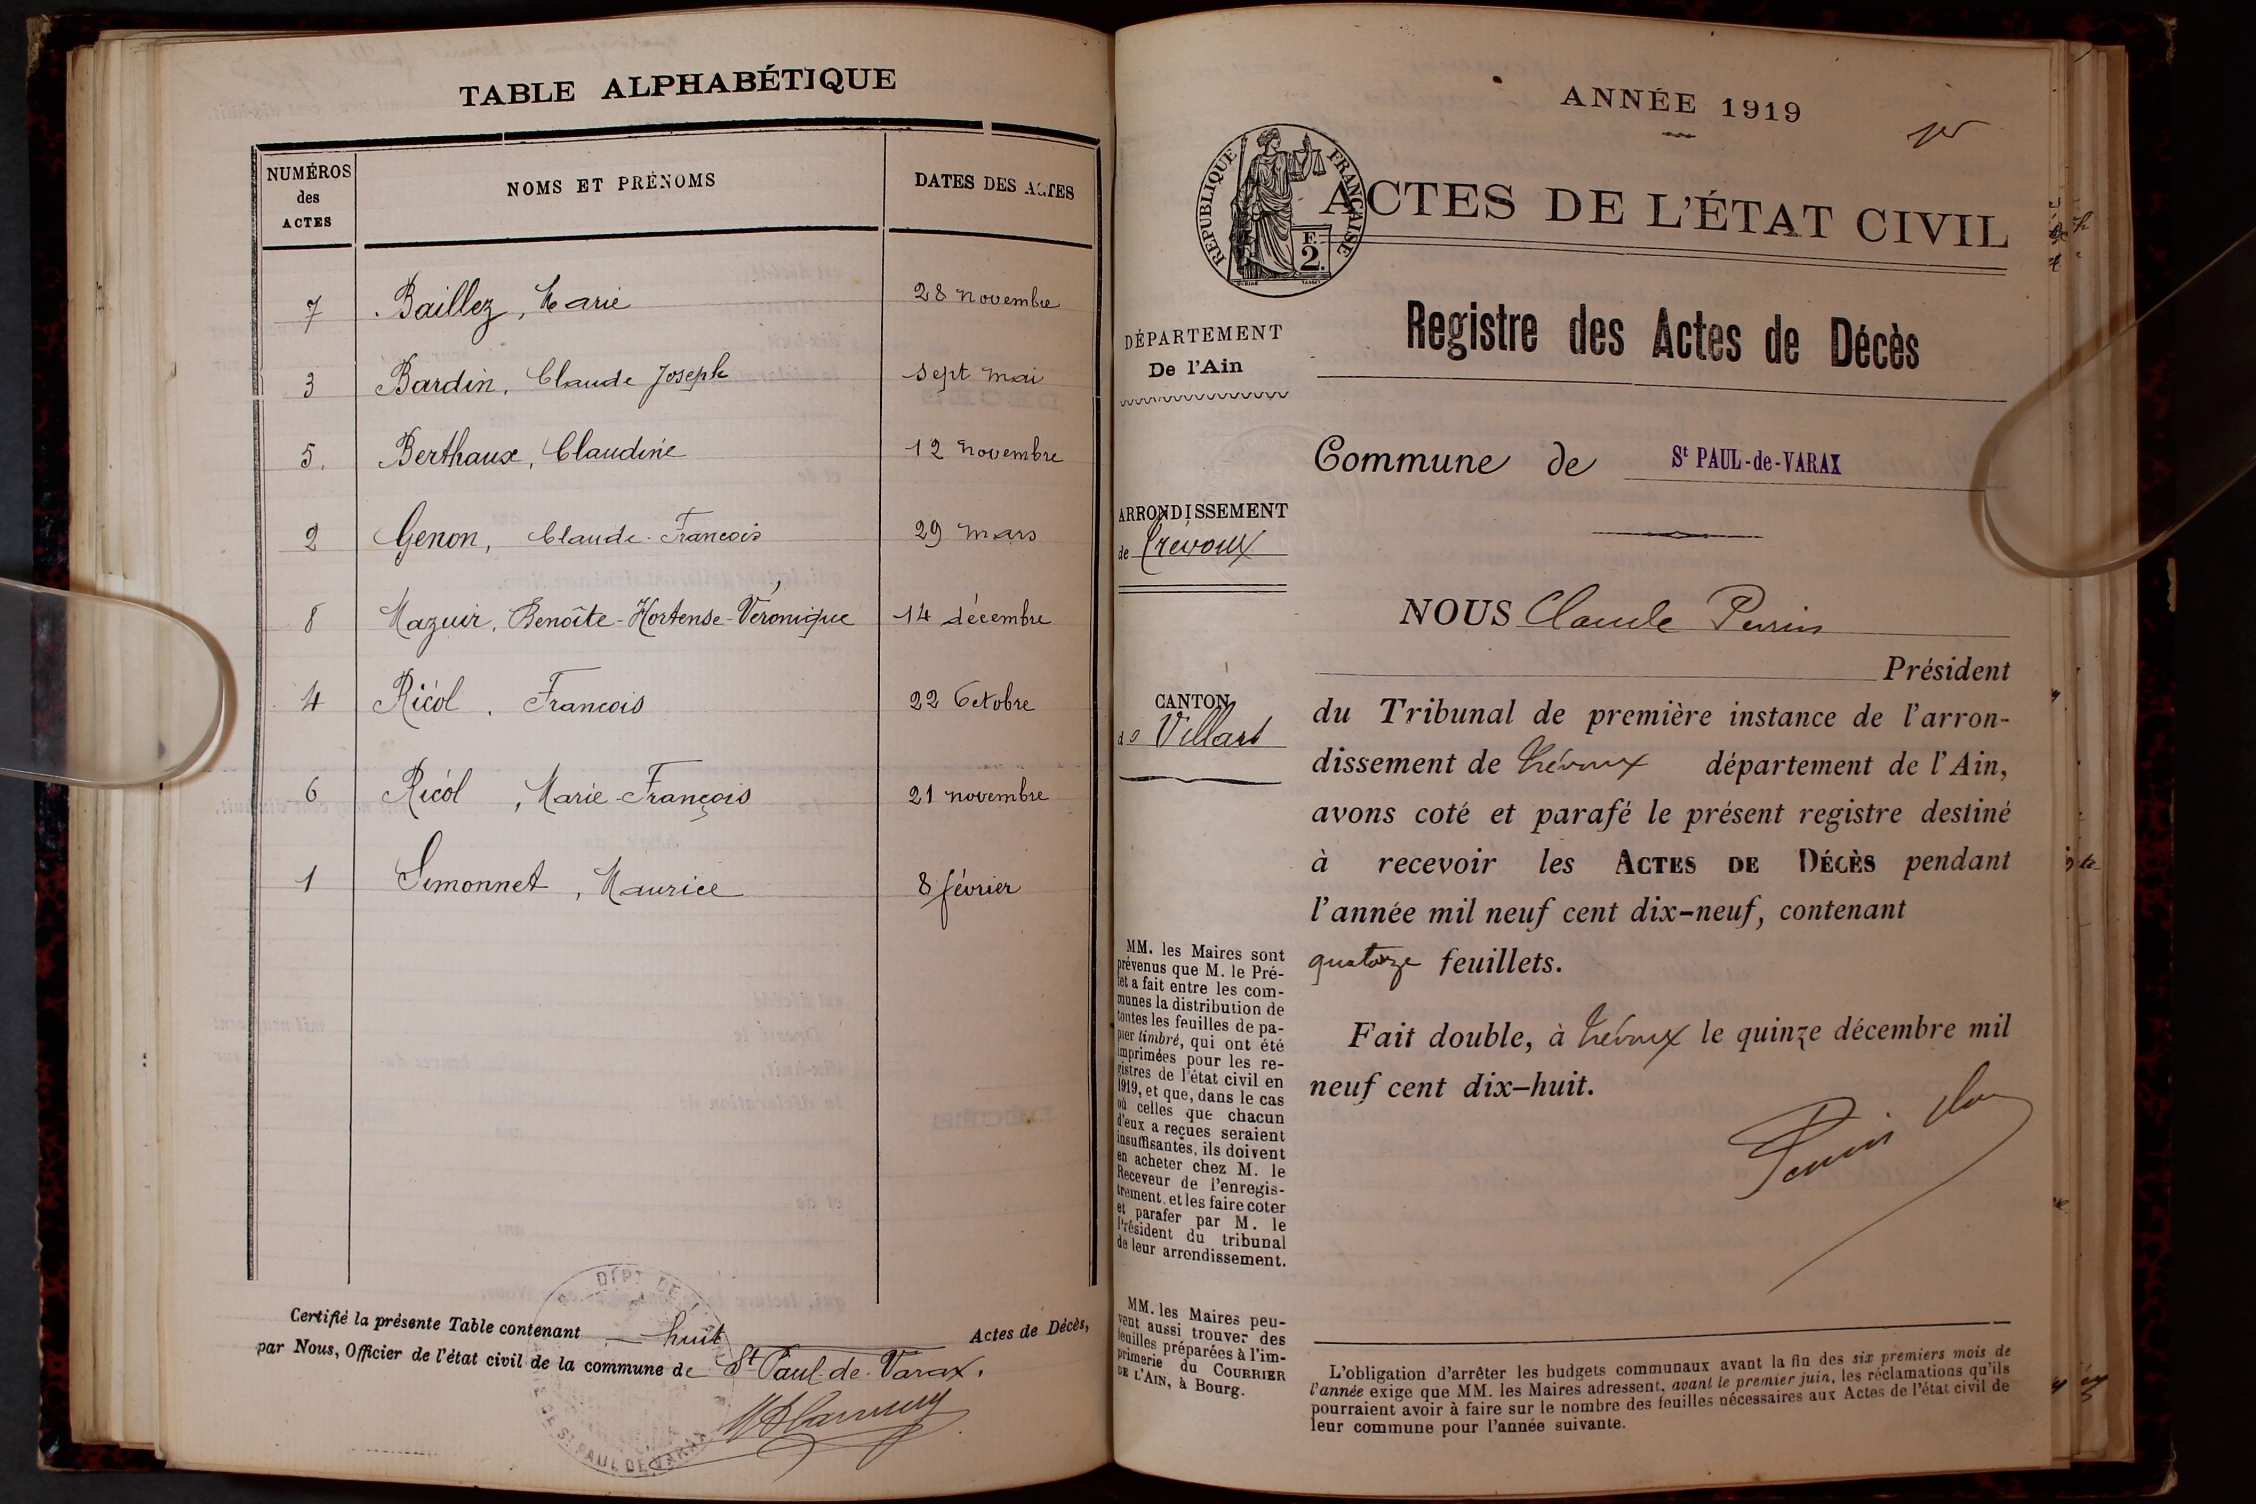 TABLE ALPHABÉTIQUE
NUMÉROS des ACTES
NOMS ET PRÉNOMS
DATES DES ACTES
7 Baillez, Marie 28 novembre
3 Bardin, Claude Joseph sept mai
5. Berthaux, Claudine 12 novembre
2 Genon, Claude-Francois 29 mars
8 Mazuir, Benoîte-Hortense-Véronique 14 décembre
4 Ricol, Francois 22 Octobre
6 Ricol, Marie-François 21 novembre
1 Simonnet, Maurice 8 février
Certifié la présente Table contenant huit Actes de Décès,
par Nous, Officier de l'état civil de la commune de St Paul-de-Varax.
DÉPT DE
DE ST PAUL DE VARAX
ANNÉE 1919
RÉPUBLIQUE FRANÇAISE
F.
2.
ACTES DE L'ÉTAT CIVIL
Registre des Actes de Décès
DÉPARTEMENT
De l'Ain
Commune de St PAUL-de-VARAX
ARRONDISSEMENT
de Trévoux
NOUS Claude Perrin
Président
CANTON
de Villars
du Tribunal de première instance de l'arron-
dissement de Trévoux département de l'Ain,
avons coté et parafé le présent registre destiné
à recevoir les ACTES DE DÉCÈS pendant
l'année mil neuf cent dix-neuf, contenant
quatorze feuillets.
Fait double, à Trévoux le quinze décembre mil
neuf cent dix-huit.
Perrin
MM. les Maires sont
prévenus que M. le Pré-
fet a fait entre les com-
munes la distribution de
toutes les feuilles de pa-
pier timbré, qui ont été
imprimées pour les re-
gistres de l'état civil en
1919, et que, dans le cas
où celles que chacun
d'eux a reçues seraient
insuffisantes, ils doivent
en acheter chez M. le
Receveur de l'enregis-
trement, et les faire coter
et parafer par M. le
Président du tribunal
de leur arrondissement.
MM. les Maires peu-
vent aussi trouver des
feuilles préparées à l'im-
primerie du COURRIER
DE L'AIN, à Bourg.
L'obligation d'arrêter les budgets communaux avant la fin des six premiers mois de
l'année exige que MM. les Maires adressent, avant le premier juin, les réclamations qu'ils
pourraient avoir à faire sur le nombre des feuilles nécessaires aux Actes de l'état civil de
leur commune pour l'année suivante.